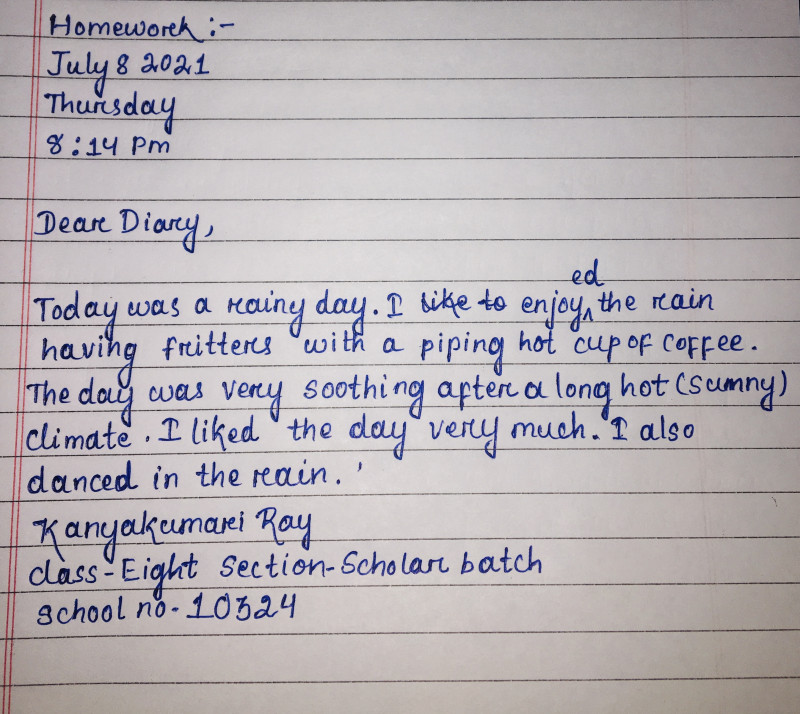 Homework :-
July 8 2021
Thursday
8:14 Pm
Dear Diary,
Today was a rainy day. I like to enjoyed the rain
having fritters with a piping hot cup of coffee.
The day was very soothing after a long hot (sunny)
climate. I liked the day very much. I also
danced in the rain.
Kanyakumari Ray
class-Eight Section-Scholar batch
school no-10324